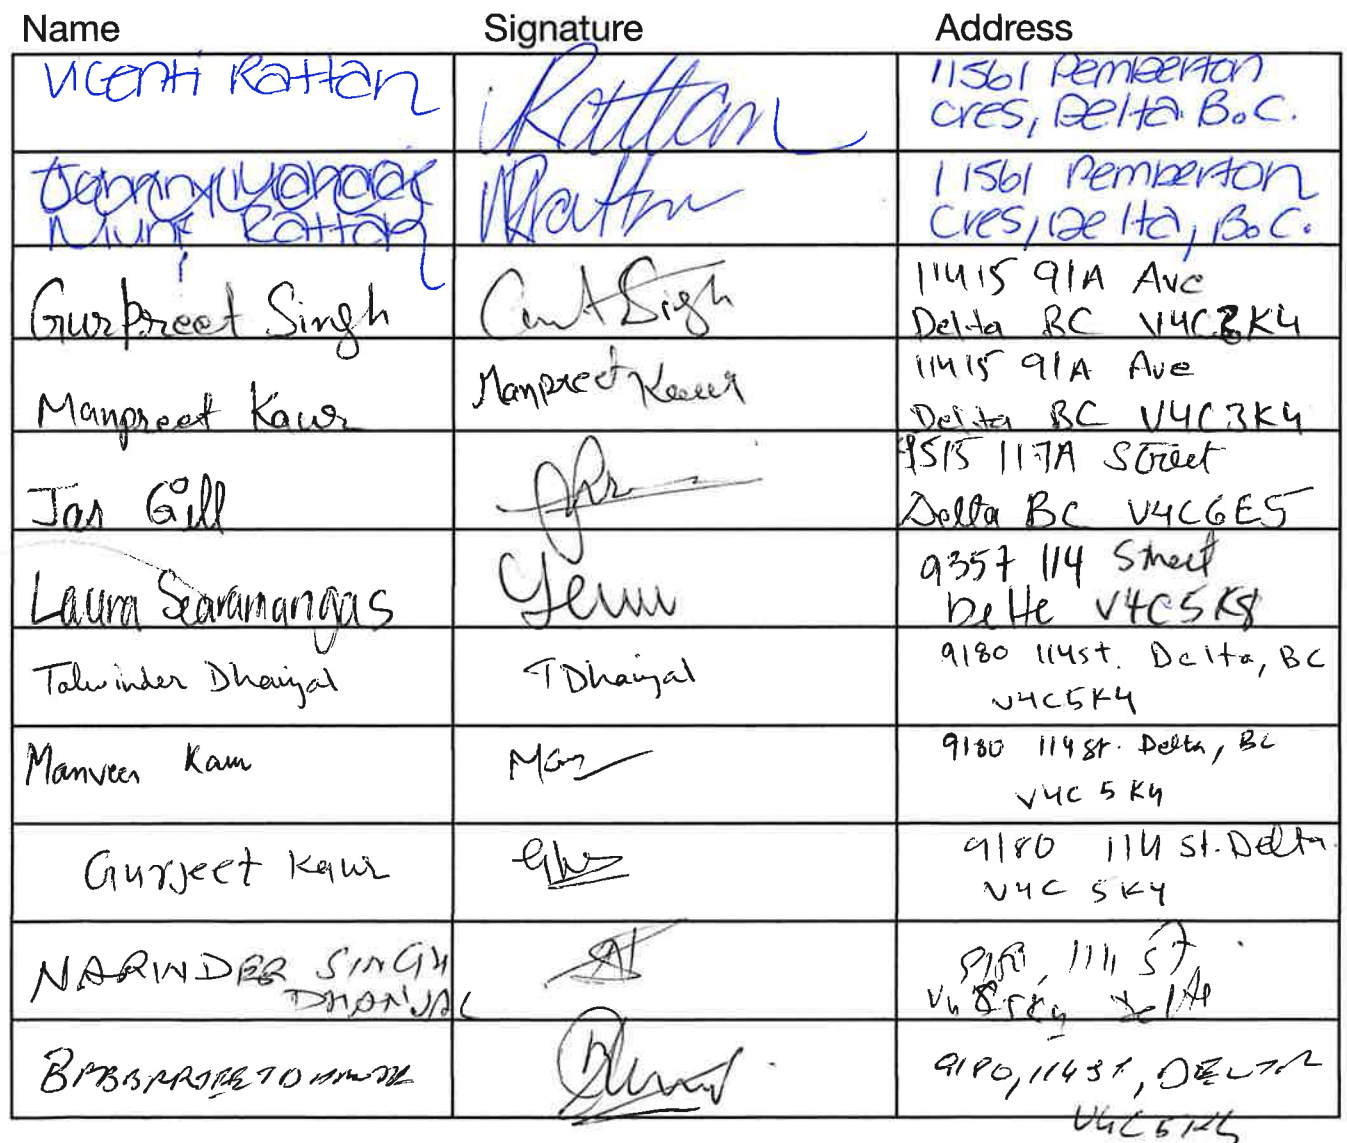 Name Signature Address
Vicenti Rattan Rattan 11561 Pemberton
cres, Delta B.C.
Rattan 11561 Pemberton
Muni Rattan Cres, Delta, B.C.
Gurpreet Singh Singh 11415 91A Ave
Delta BC V4C3K4
Manpreet Kaur Manpreet Kaur 11415 91A Ave
Delta BC V4C3K4
Jas Gill 9515 117A Street
Delta BC V4C6E5
Laura Searamangas 9357 114 Street
Delta V4C5K8
Talwinder Dhanjal T Dhanjal 9180 114 St. Delta, BC
V4C5K4
Manveer Kaur 9180 114 St. Delta, BC
V4C 5K4
Gurjeet Kaur 9180 114 St. Delta
V4C 5K4
NARINDER SINGH St
DHANJAL Delta
9180, 114 St, DELTA
V4C5K4